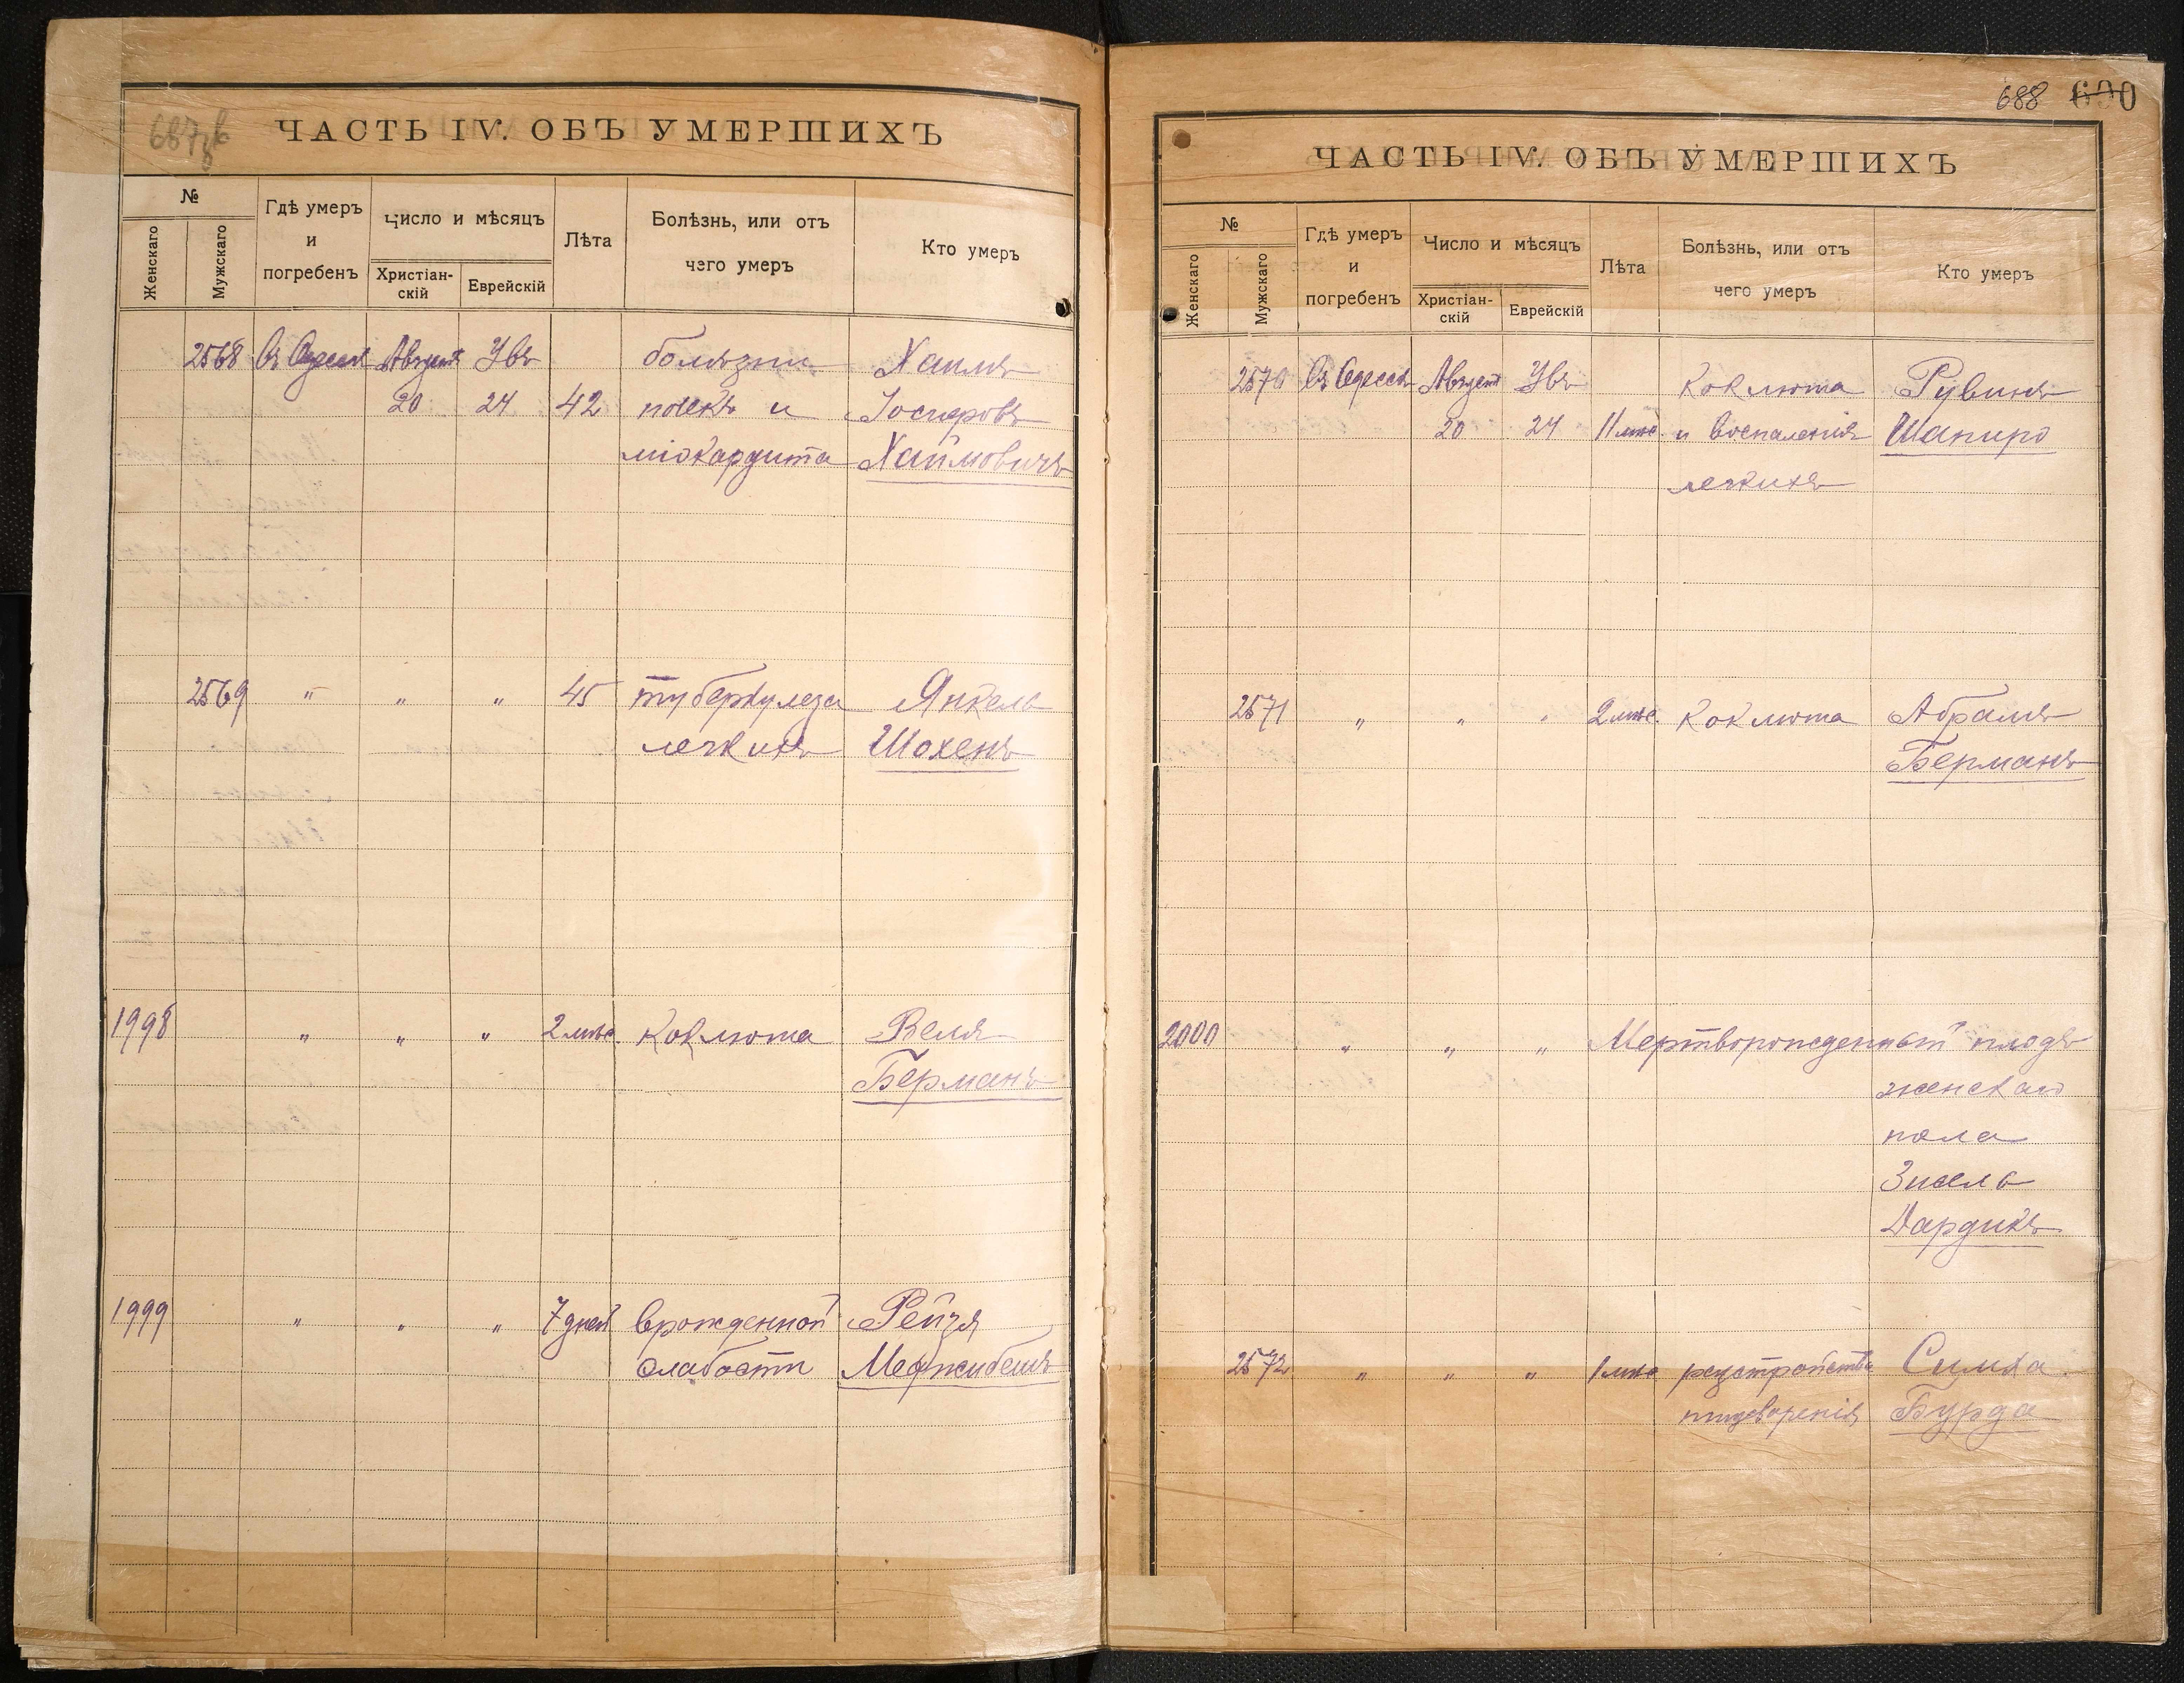 687об
ЧАСТЬ IV. ОБЪ УМЕРШИХЪ
№
Женскаго
Мужскаго
Гдѣ умеръ
и
погребенъ
Число и мѣсяцъ
Христіан-
скій
Еврейскій
Лѣта
Болѣзнь, или отъ
чего умеръ
Кто умеръ
2568 Въ Одессѣ Августъ Увъ болѣзни Хаимъ
20 24 42 почекъ и Іосифовъ
міокардита Хаймовичъ
2569 " " " 45 туберкулеза Янкель
легкихъ Шохенъ
1998 " " " 2 мѣс. Коклюша Веля
Берманъ
1999 " " " 7 дней врожденной Рейзя
слабости Меджибешъ
688 690
ЧАСТЬ IV. ОБЪ УМЕРШИХЪ
№
Женскаго
Мужскаго
Гдѣ умеръ
и
погребенъ
Число и мѣсяцъ
Христіан-
скій
Еврейскій
Лѣта
Болѣзнь, или отъ
чего умеръ
Кто умеръ
2570 Въ Одессѣ Августъ Увъ Коклюша Рувинъ
20 24 11 мѣс. и воспаленія Шапиро
легкихъ
2571 " " " 2 мѣс. Коклюша Абрамъ
Берманъ
2000 " " " Мертворожденный плодъ
женскаго
пола
Зисель
Дардикъ
2572 " " " 1 мѣс разстройства Симха
пищеваренія Бурда